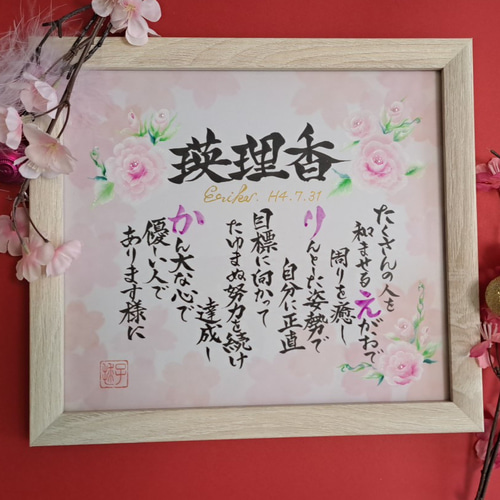 瑛理香
Erika. H4.7.31
たくさんの人を
和ませるえがおで
周りを癒し
りんとした姿勢で
自分に正直
目標に向かって
たゆまぬ努力を続け
達成し
かん大な心で
優しい人で
あります様に